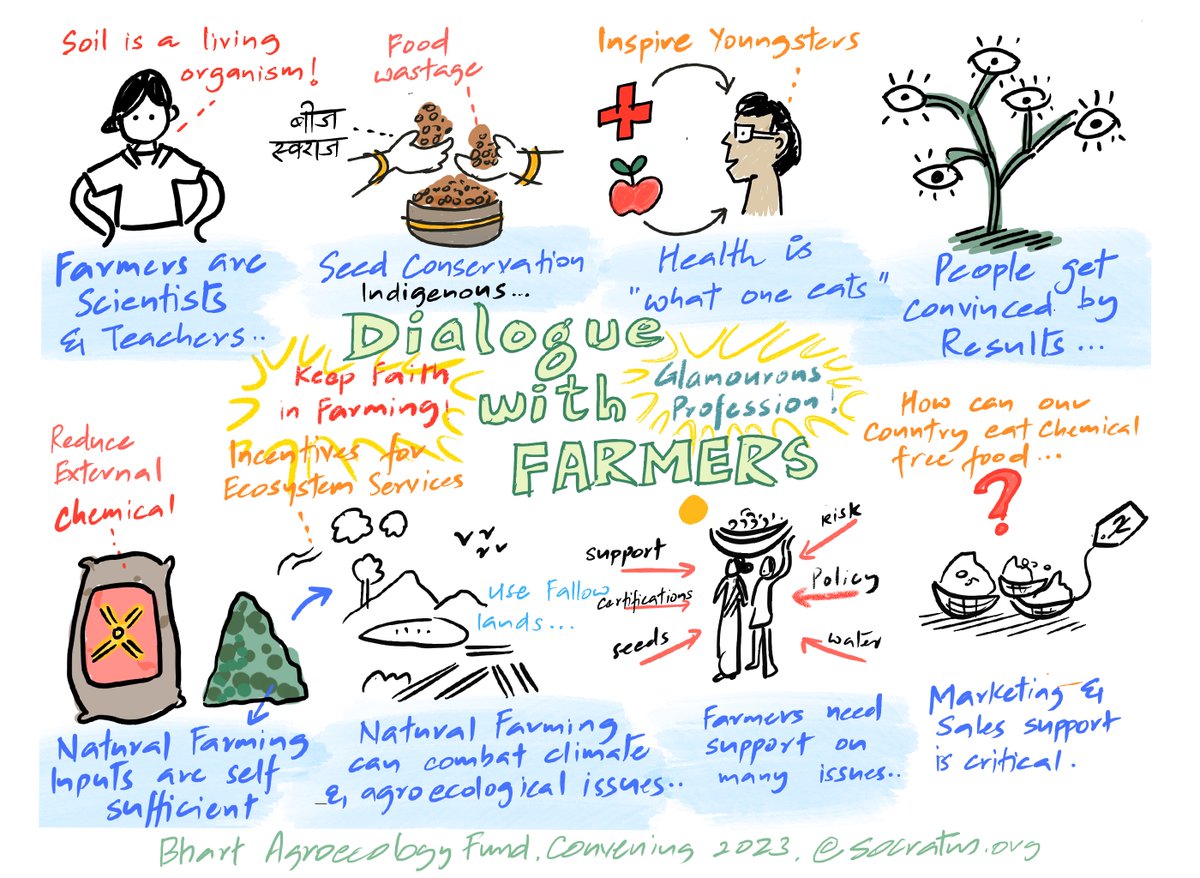 Soil is a living
organism!
Food
wastage
बीज
स्वराज
Inspire Youngsters
Farmers are
Scientists
& Teachers..
Seed Conservation
Indigenous...
Health is
"what one eats"
People get
convinced by
Results...
Dialogue
with
FARMERS
Keep Faith
in Farming!
Glamourons
Profession!
Incentives for
Ecosystem Services
How can our
Country eat Chemical
free food...
?
Reduce
External
Chemical
use Fallow
lands...
support
certifications
seeds
risk
Policy
water
Natural Farming
Inputs are self
sufficient
Natural Farming
can combat climate
& agroecological issues..
Farmers need
support on
many issues..
Marketing &
Sales support
is critical.
Bhart Agroecology Fund. Convening 2023. @socratus.org